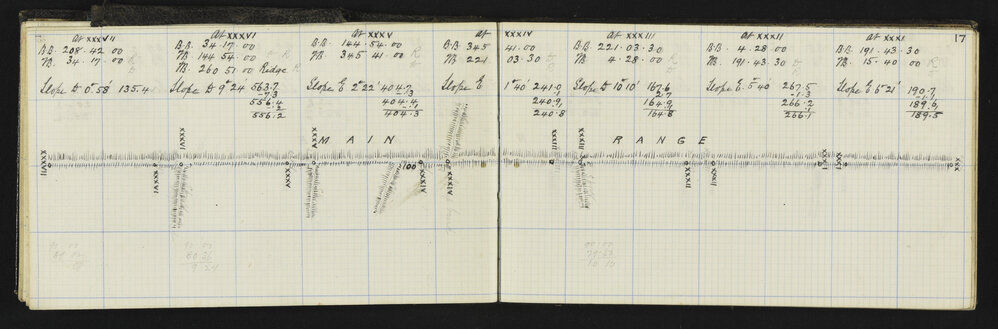 17
At XXXVII
B.B. 208.42.00
B. 34.17.00
Slope D 0°58' 135.4
At XXXVI
B.B. 34.17.00
B. 144 54.00 R
B. 260 51.00 Ridge R
Slope D 9°24' 563.7
556.4
556.2
At XXXV
B.B. 144.54.00
B. 345 41.00 R
Slope E 2°22' 404.7
404.4
404.3
At XXXIV
B.B. 345 41.00
B. 221 03.30
Slope E 1°40' 241.0
240.9
240.8
At XXXIII
B.B. 221.03.30
B. 4.28.00 R
Slope D 10°10' 167.6
2.7
164.9
164.8
At XXXII
B.B. 4.28.00
B. 191.43.30
Slope E. 5°40' 267.5
1.3
266.2
266.1
At XXXI
B.B. 191.43.30
B. 15.40.00 R
Slope E 6°21' 190.7
1.1
189.6
189.5
MAIN RANGE
XXXVII
XXXVI
XXXVI
XXXV
XXXV
100
XXXIV
XXXIV
XXXIII
XXXIII
XXXII
XXXII
XXXI
XXXI
XXX